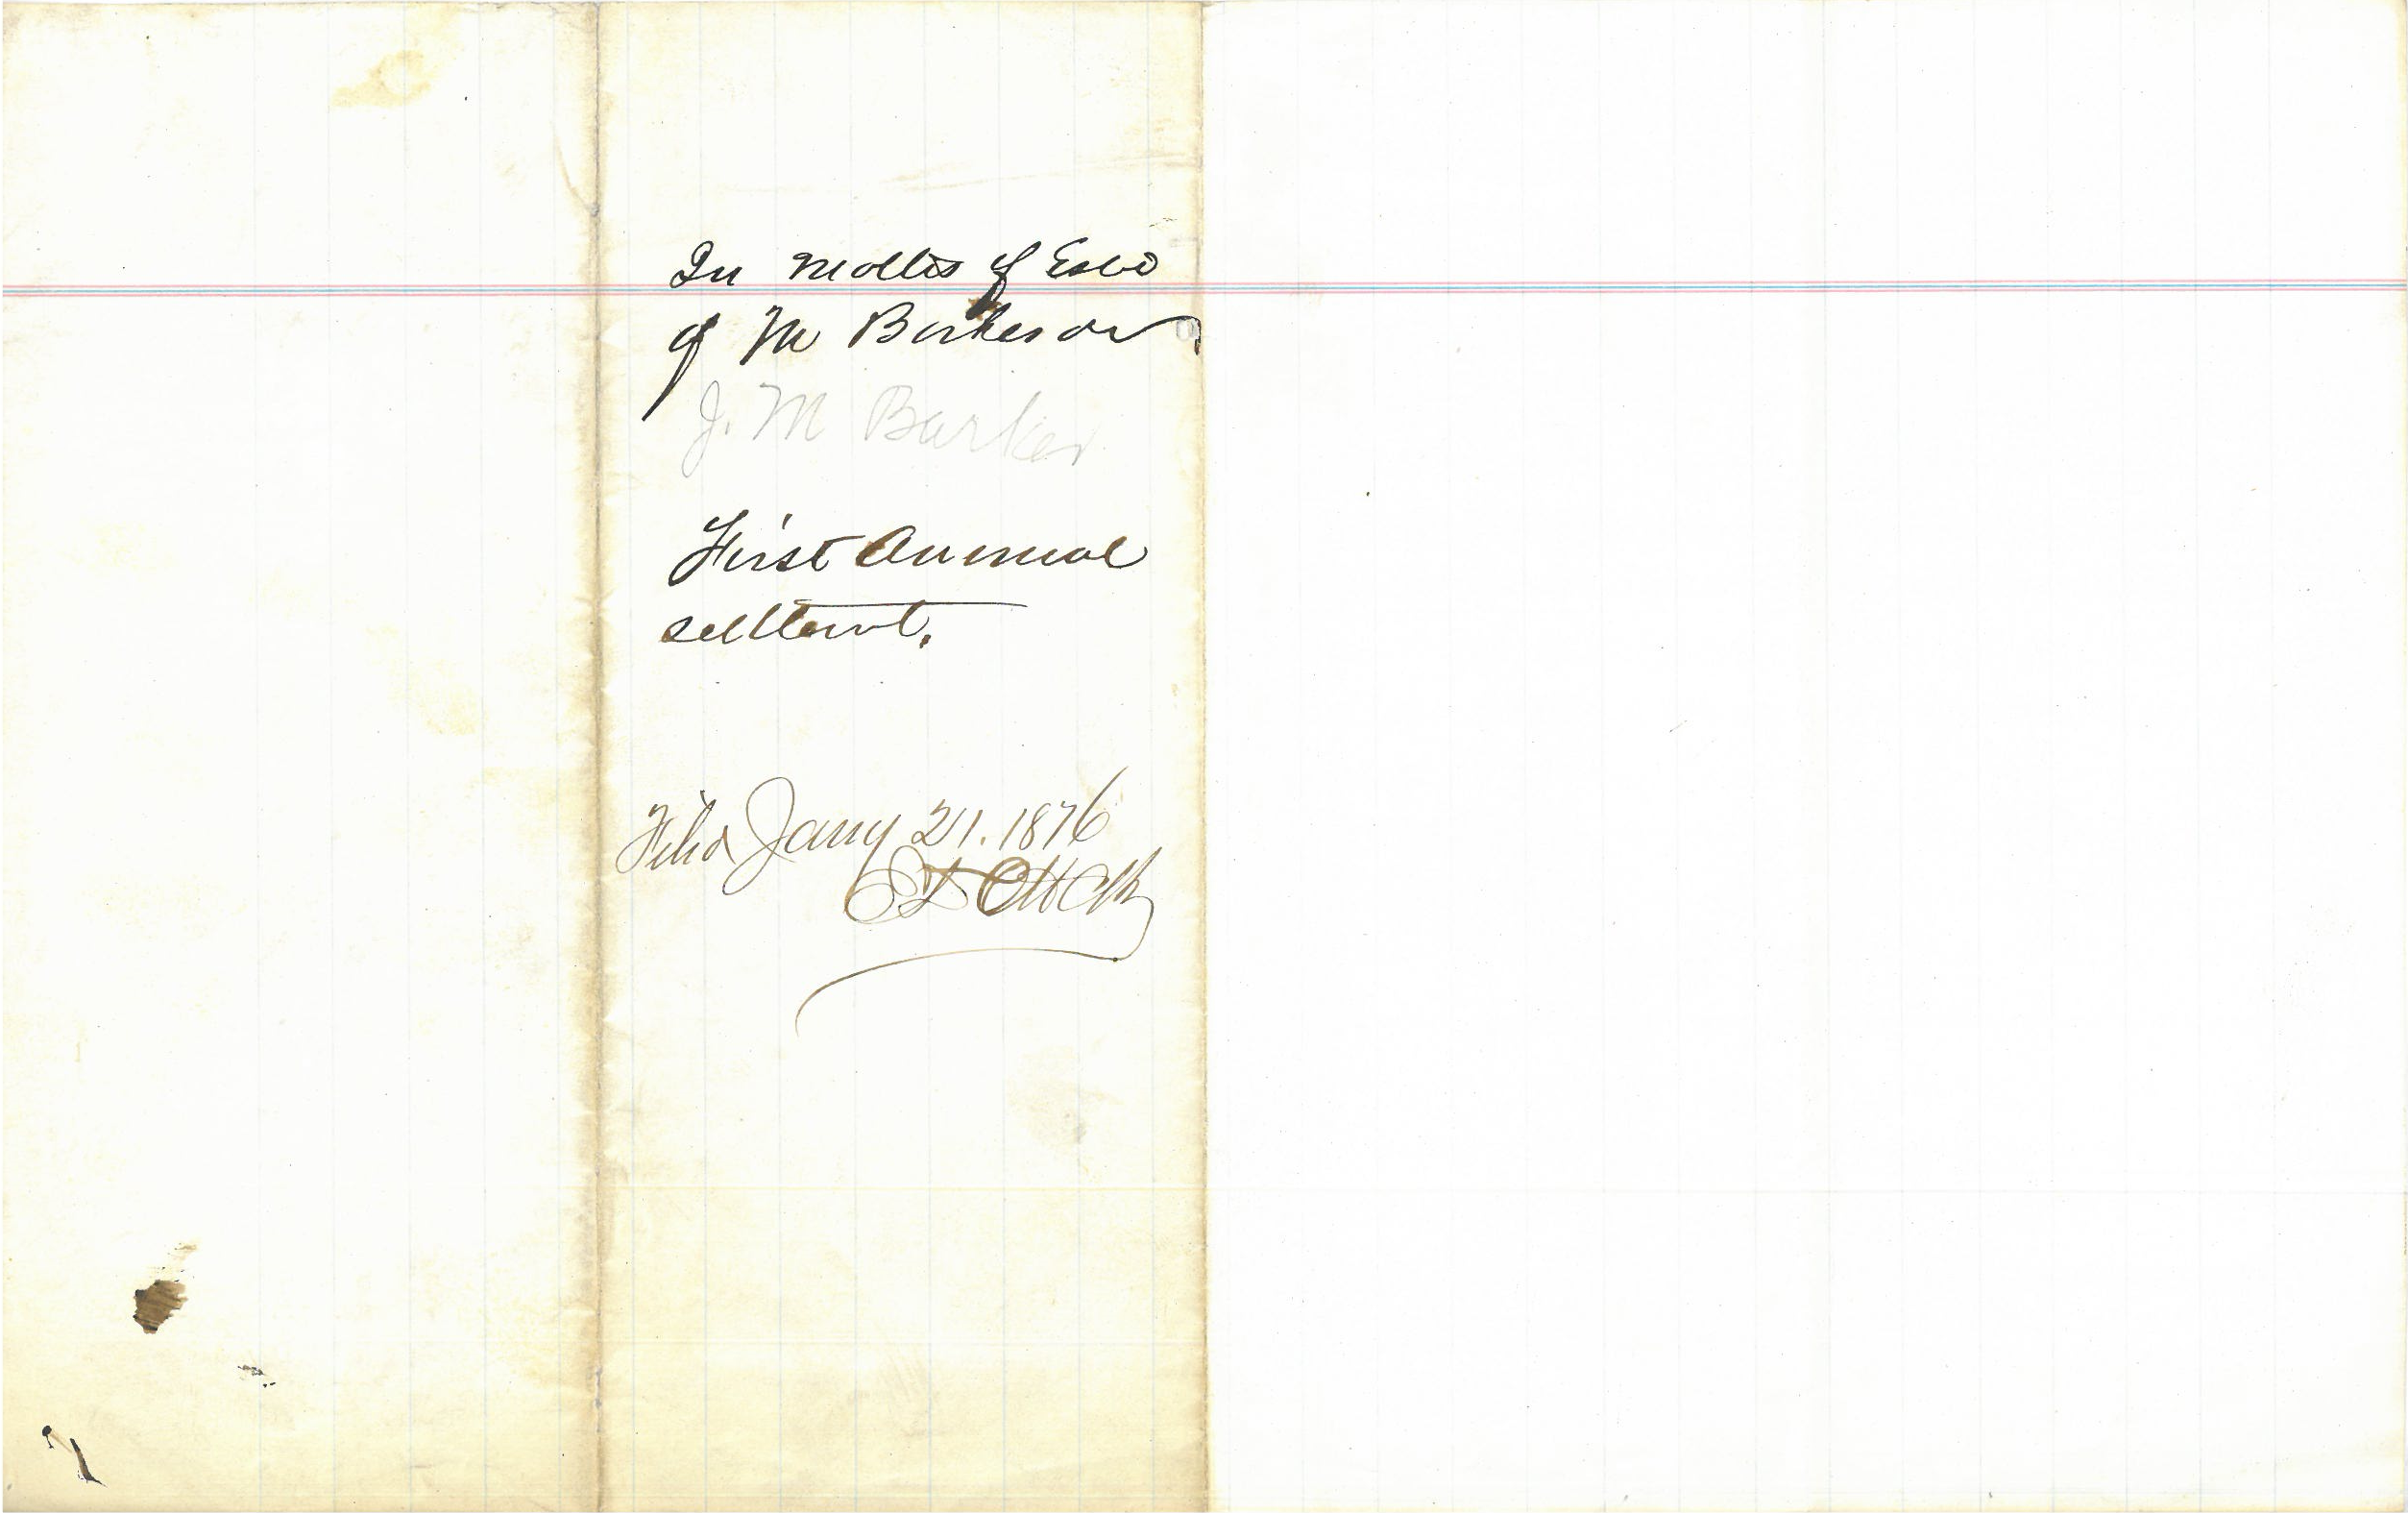 In Matter of Est
of M Barker
J. M Barker
First Annual
settlemt.
Filed Jany 21. 1876
Ott Clk